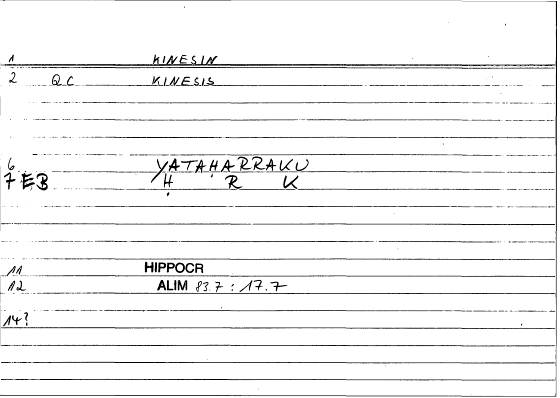 1 KINESIN
2 QC KINESIS
6 YATAḤARRAKU
7 EB Ḥ R K
11 HIPPOCR
12 ALIM 83.7 : 17.7
14?